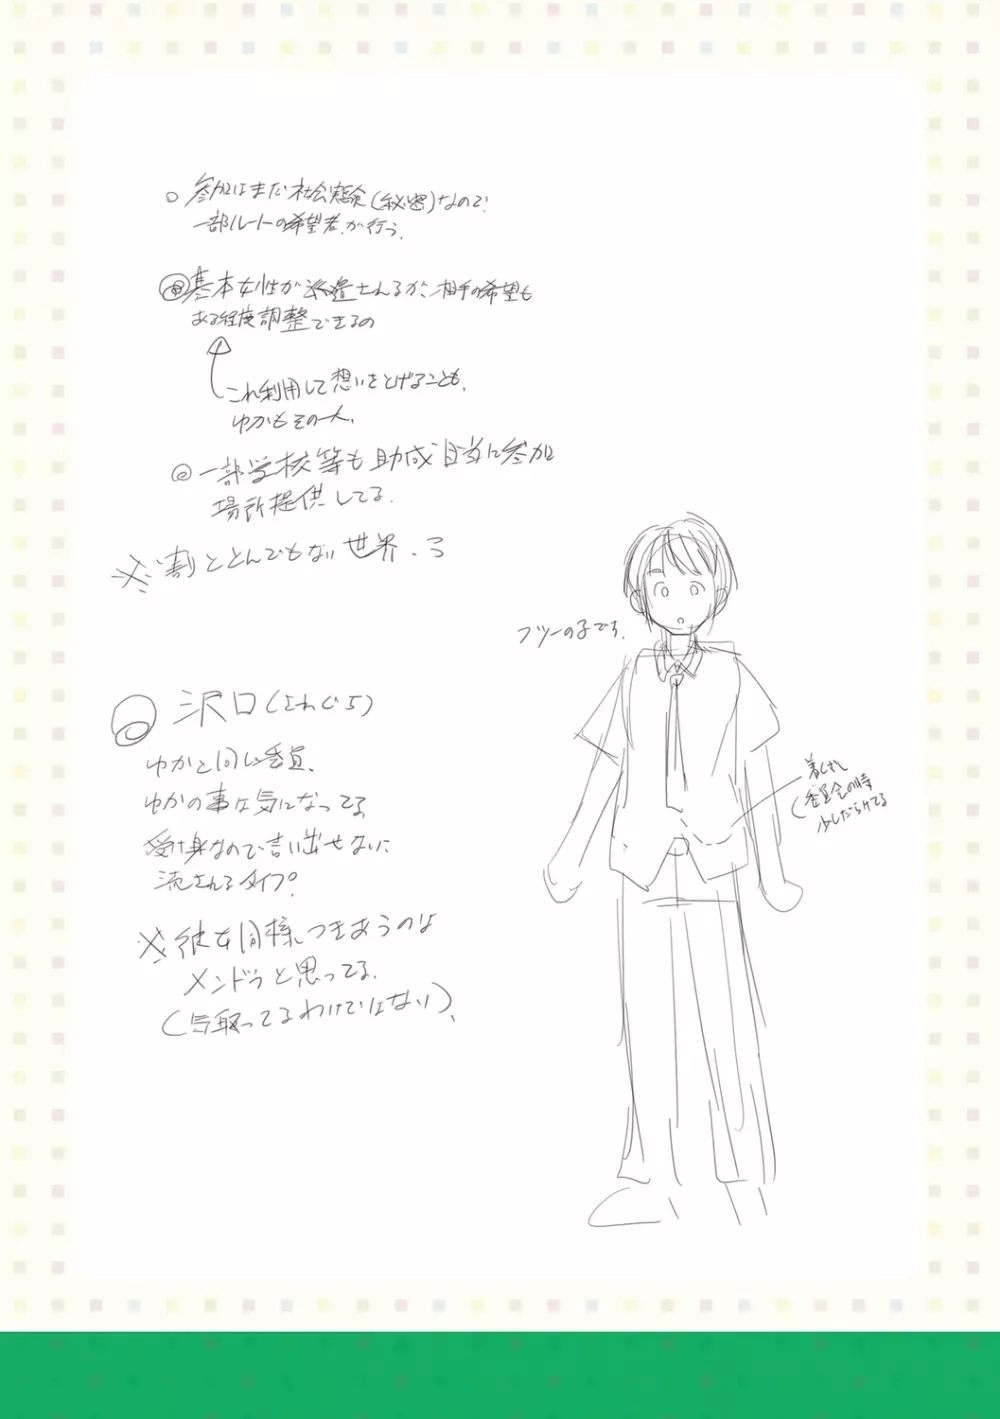 ○ 参加はまだ社会実験(秘密)なので
一部ルートの希望者が行う。
◎基本女性が派遣されるが、相手の希望も
ある程度調整できるの
これ利用して想いをとげることも。
ゆかもその一人。
◎一部学校等も助成目当に参加
場所提供してる。
※割ととんでもない世界。
フツーの子です。
◎沢口(さわぐち)
ゆかと同じ委員、
ゆかの事は気になってる
受け身なので言い出せないに
流されるタイプ。
着くずし
(委員会の時
少しだらけてる
※彼も同様つきあうのは
メンドウと思ってる。
(気取ってるわけではない)、